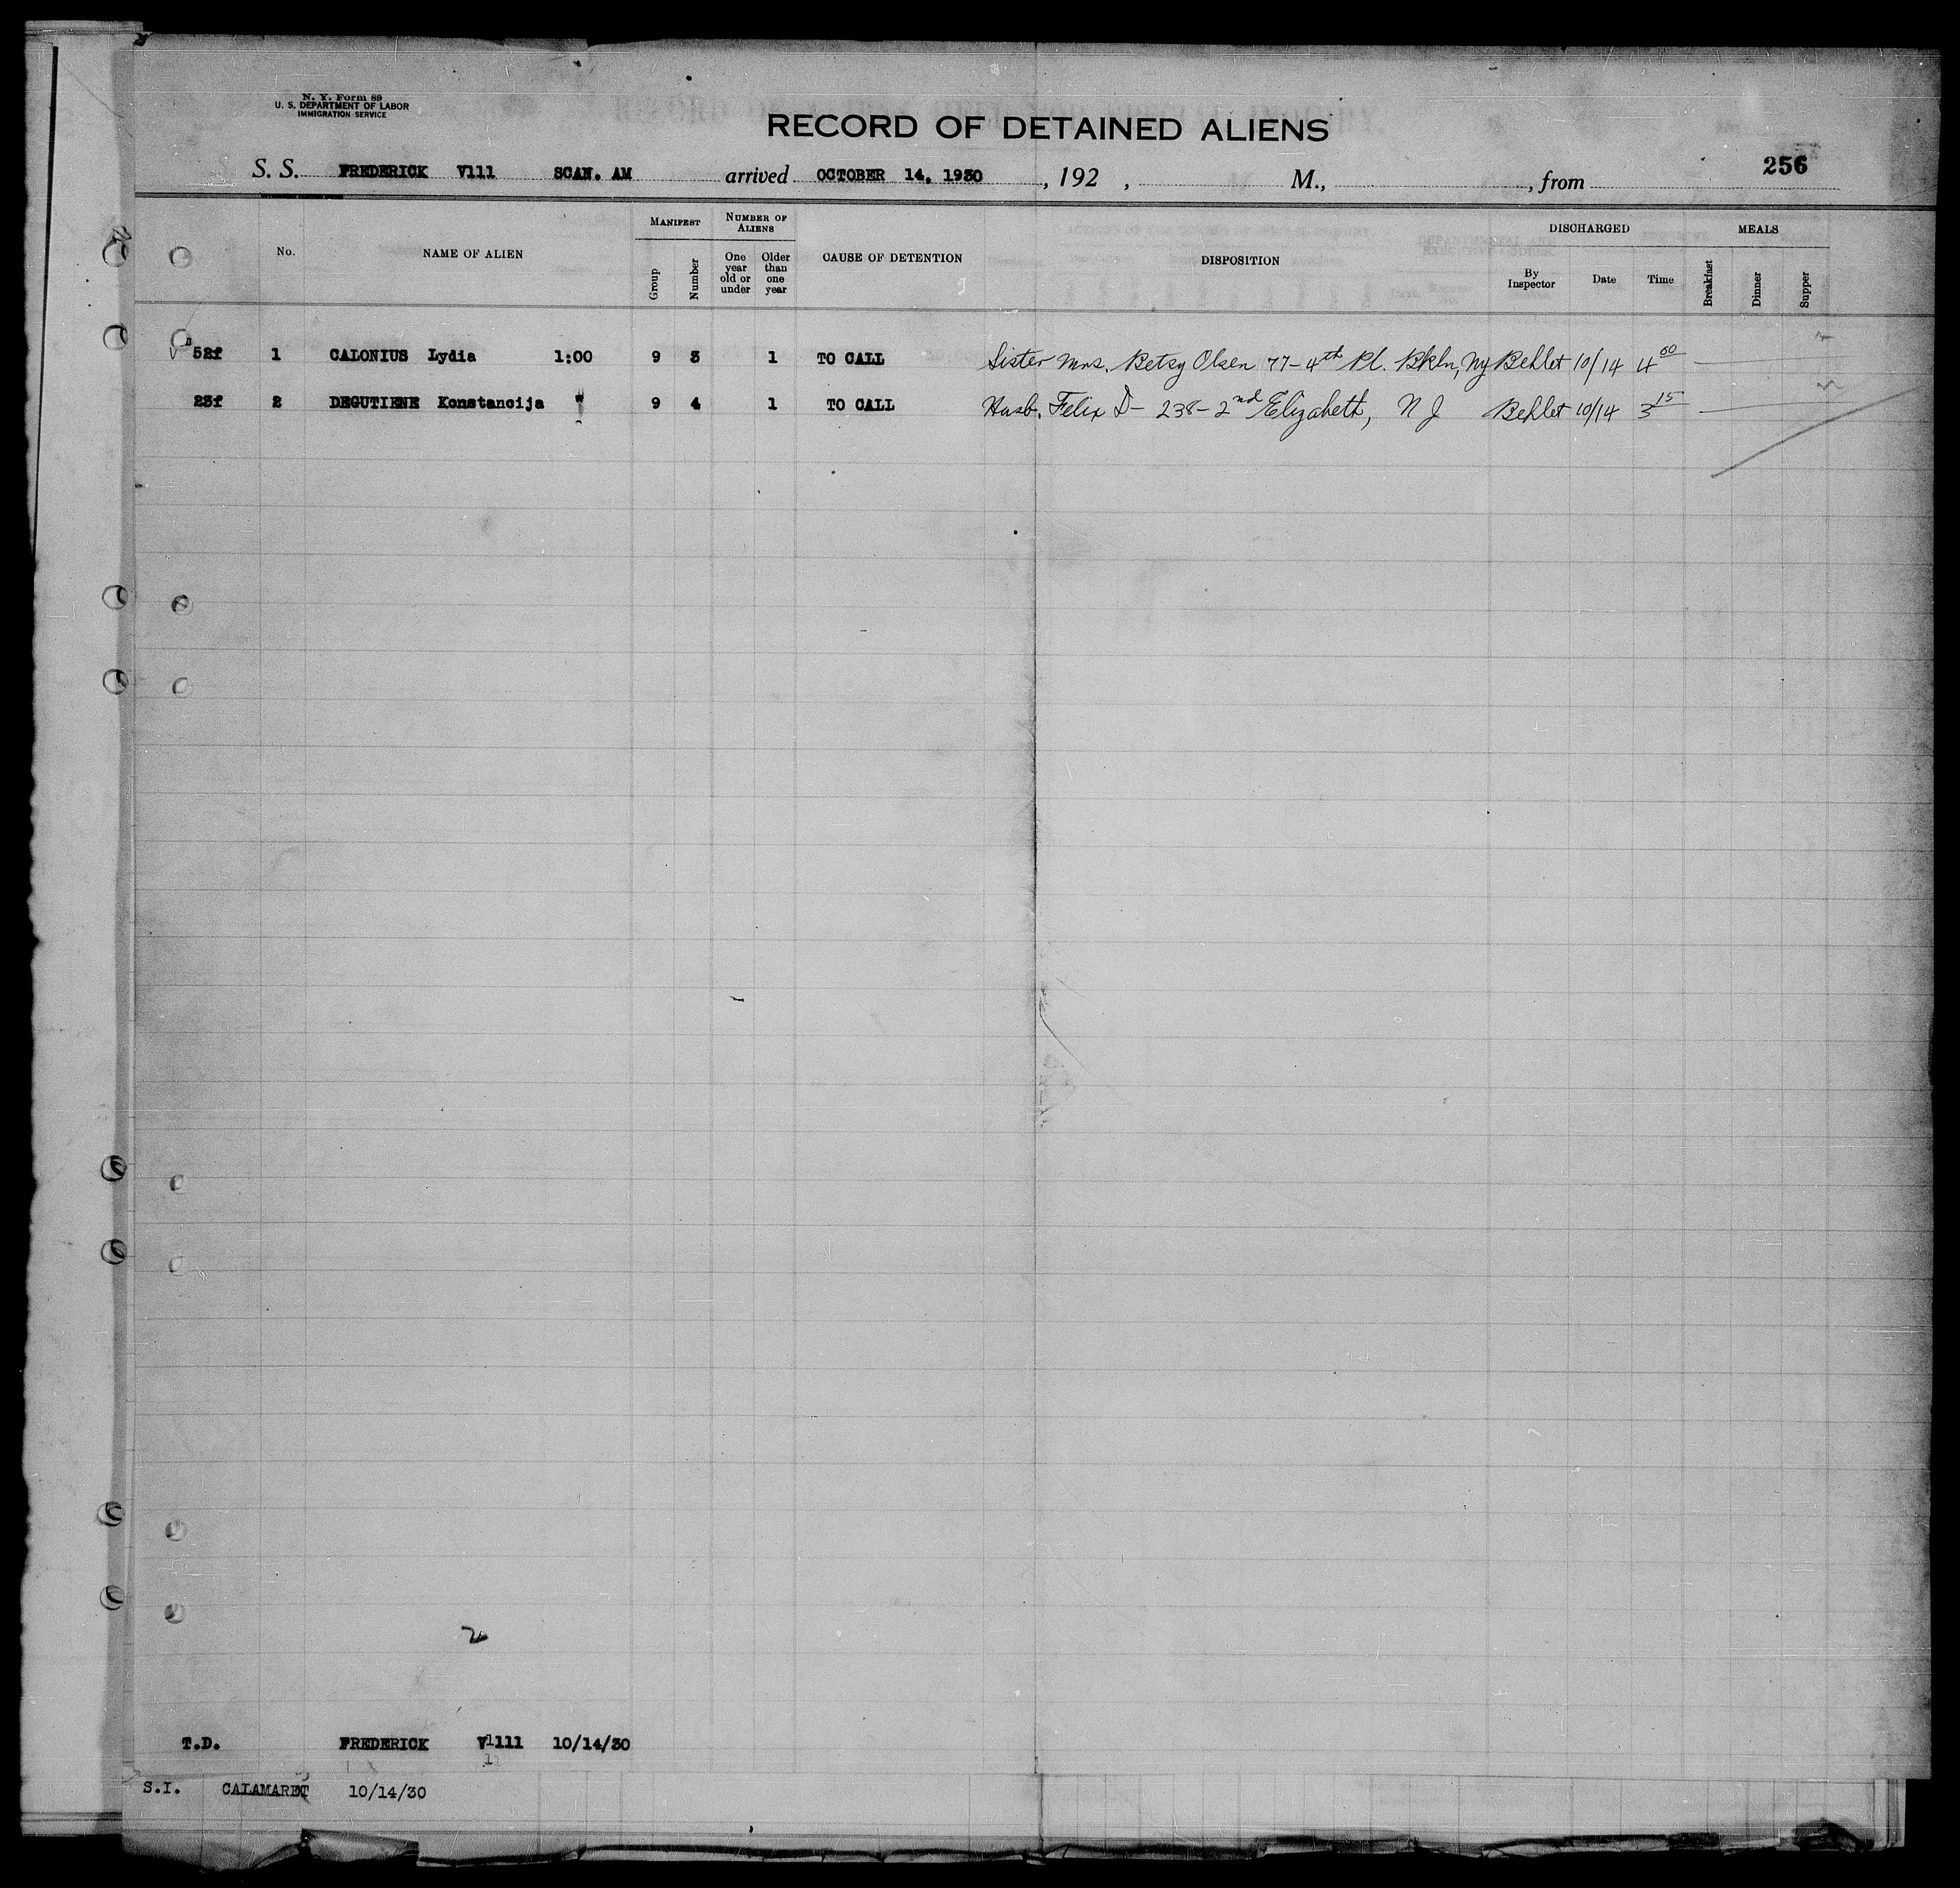 N. Y. Form 89
U. S. DEPARTMENT OF LABOR
IMMIGRATION SERVICE
RECORD OF DETAINED ALIENS
256
S. S. FREDERICK V111 SCAN. AM arrived OCTOBER 14, 1930, 192 , M., , from
No. NAME OF ALIEN MANIFEST Group Number NUMBER OF ALIENS One year old or under Older than one year CAUSE OF DETENTION DISPOSITION DISCHARGED By Inspector Date Time MEALS Breakfast Dinner Supper
52f 1 CALONIUS Lydia 1:00 9 3 1 TO CALL Sister Mrs. Betsy Olsen 77-4th Pl. Bkln, NY Behlet 10/14 4 00
23f 2 DEGUTIENE Konstancija " 9 4 1 TO CALL Husb. Felix D- 238-2nd Elizabeth, N J Behlet 10/14 3 15
2
T.D. FREDERICK V111 10/14/30
S.I. CALAMARET 10/14/30